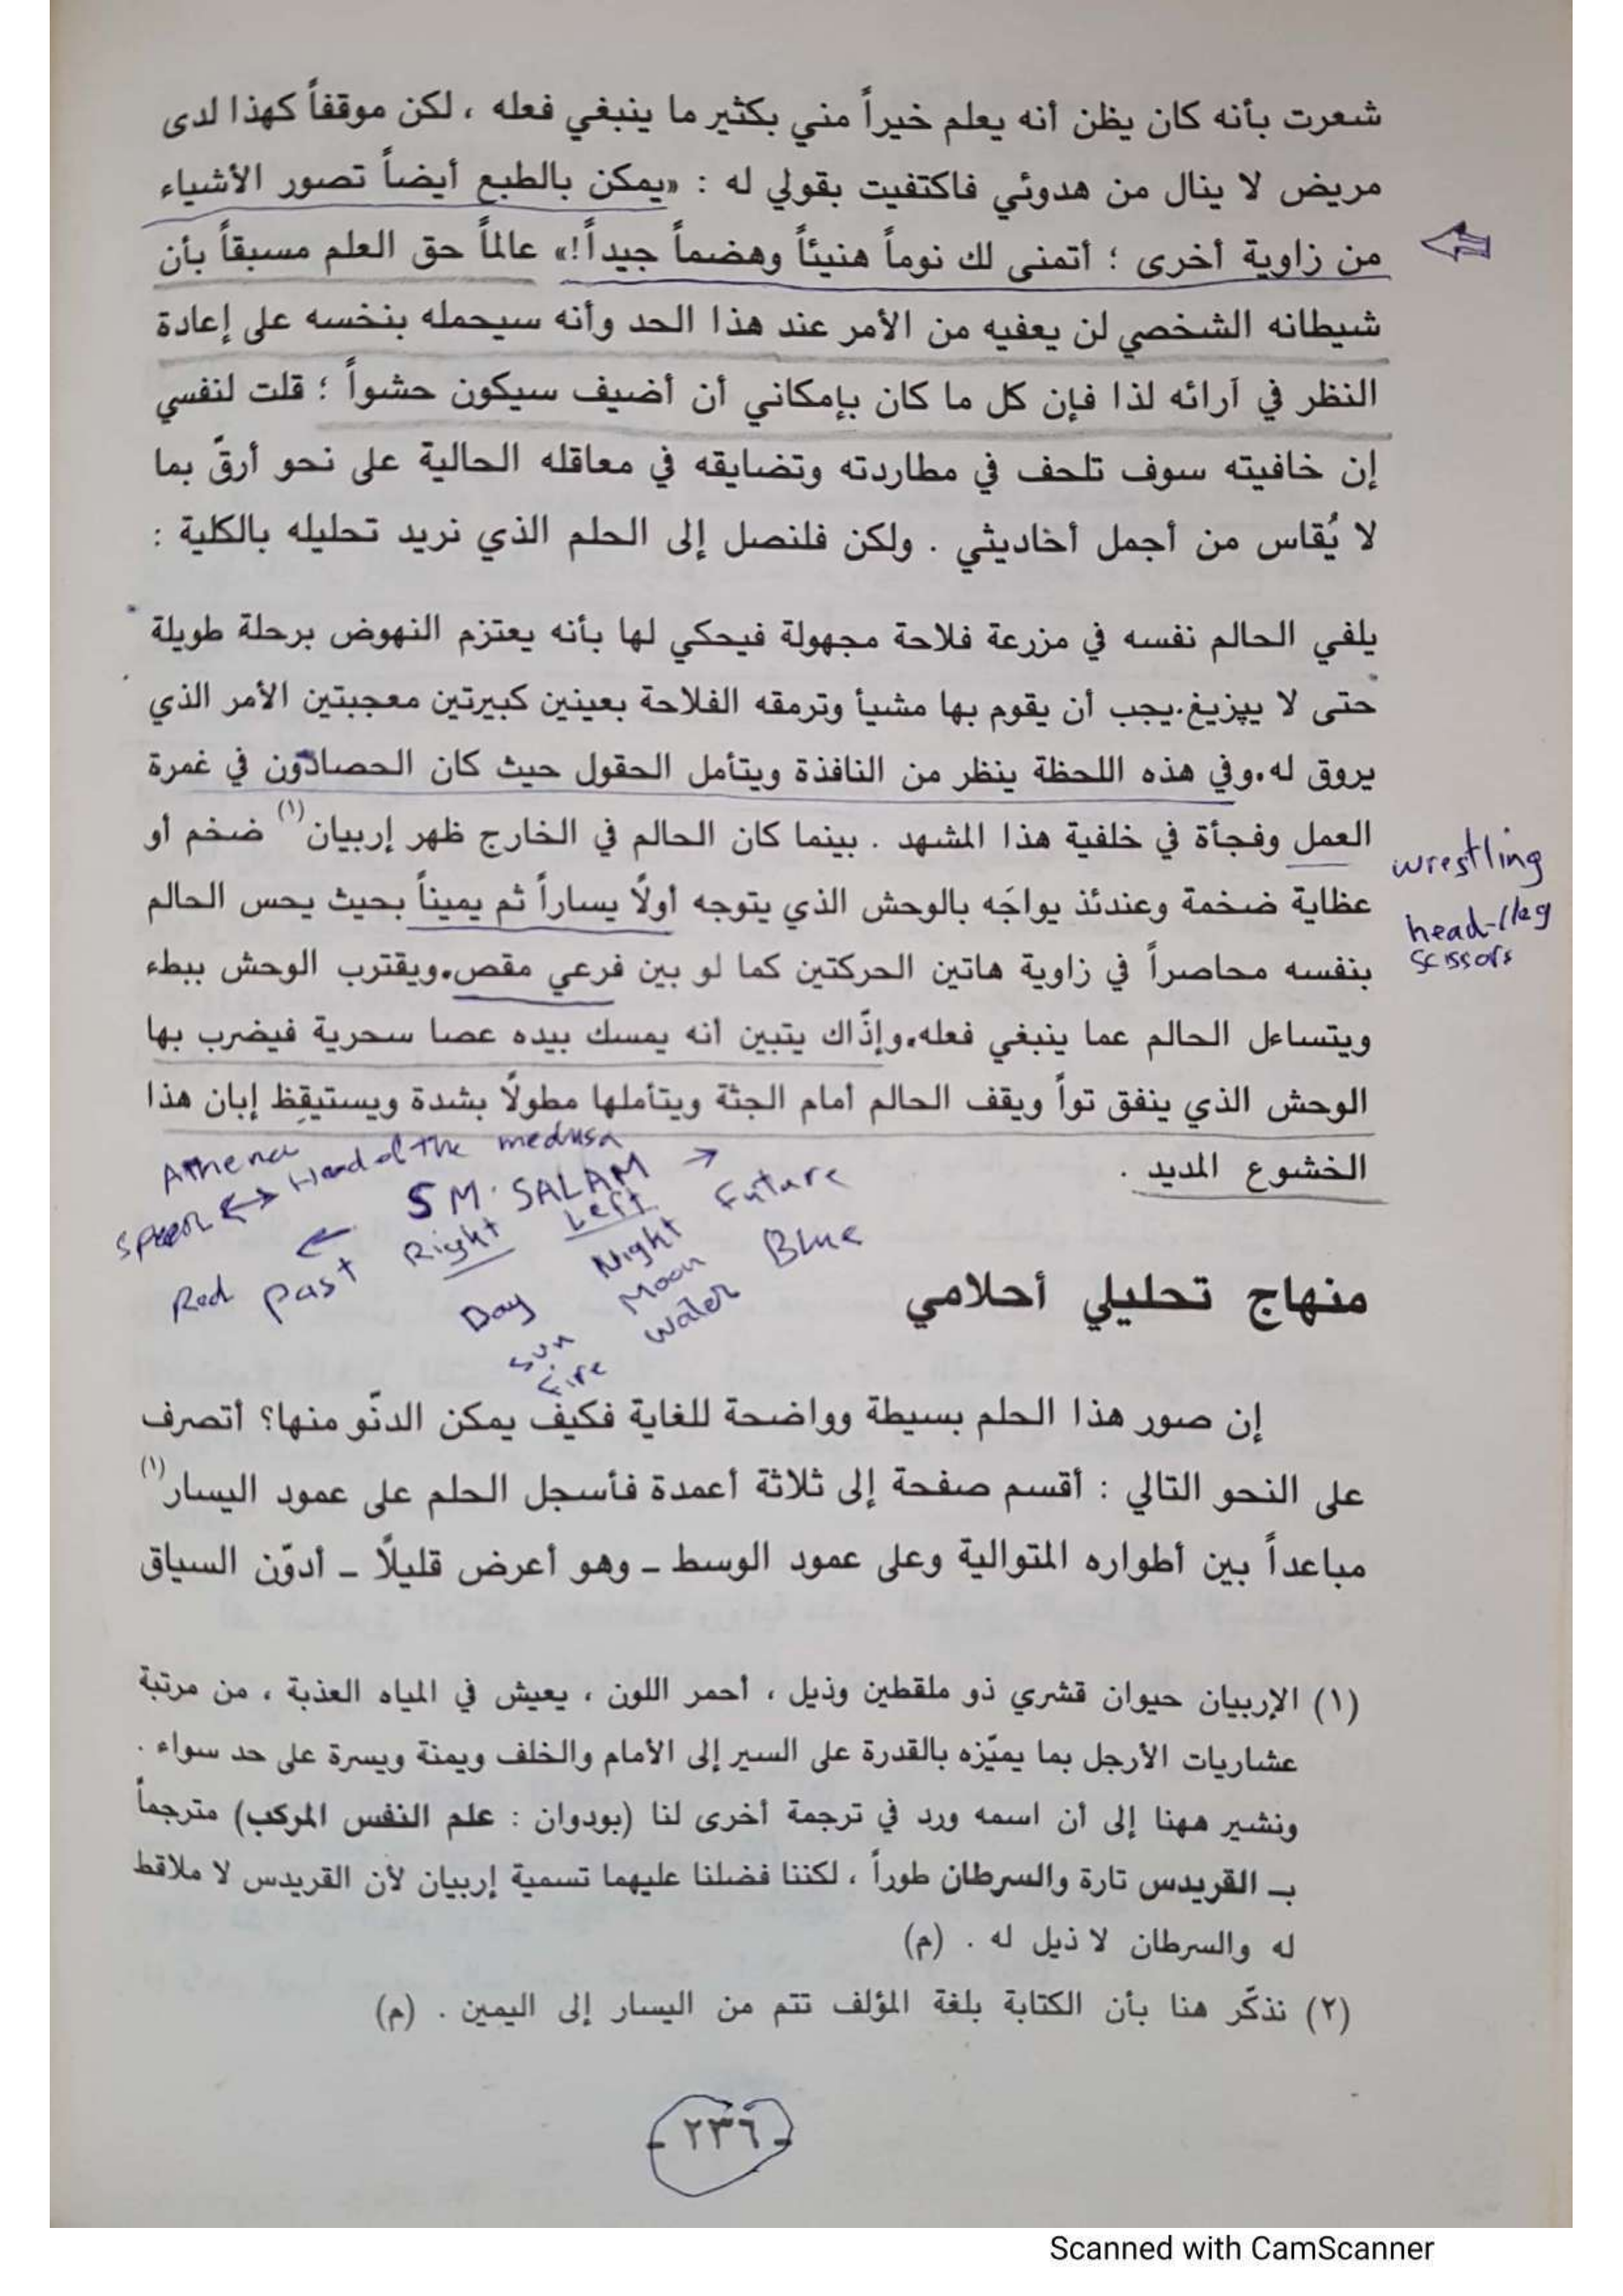 شعرت بأنه كان يظن أنه يعلم خيراً مني بكثير ما ينبغي فعله ، لكن موقفاً كهذا لدى
مريض لا ينال من هدوئي فاكتفيت بقولي له : «يمكن بالطبع أيضاً تصور الأشياء
من زاوية أخرى ؛ أتمنى لك نوماً هنيئاً وهضماً جيداً!» عالماً حق العلم مسبقاً بأن
شيطانه الشخصي لن يعفيه من الأمر عند هذا الحد وأنه سيحمله بنخسه على إعادة
النظر في آرائه لذا فإن كل ما كان بإمكاني أن أضيف سيكون حشواً ؛ قلت لنفسي
إن خافيته سوف تلحف في مطاردته وتضايقه في معاقله الحالية على نحو أرقّ بما
لا يُقاس من أجمل أخاديثي . ولكن فلنصل إلى الحلم الذي نريد تحليله بالكلية :
يلفي الحالم نفسه في مزرعة فلاحة مجهولة فيحكي لها بأنه يعتزم النهوض برحلة طويلة
حتى لا يپزيغ.يجب أن يقوم بها مشيأ وترمقه الفلاحة بعينين كبيرتين معجبتين الأمر الذي
يروق له.وفي هذه اللحظة ينظر من النافذة ويتأمل الحقول حيث كان الحصادون في غمرة
العمل وفجأة في خلفية هذا المشهد . بينما كان الحالم في الخارج ظهر إربيان(١) ضخم أو
عظاية ضخمة وعندئذ يواجَه بالوحش الذي يتوجه أولًا يساراً ثم يميناً بحيث يحس الحالم
بنفسه محاصراً في زاوية هاتين الحركتين كما لو بين فرعي مقص.ويقترب الوحش ببطء
ويتساءل الحالم عما ينبغي فعله.وإذّاك يتبين أنه يمسك بيده عصا سحرية فيضرب بها
الوحش الذي ينفق تواً ويقف الحالم أمام الجثة ويتأملها مطولًا بشدة ويستيقظ إبان هذا
الخشوع المديد .
wrestling
head-/leg
scissors
Athena
Head of the medusa
SM. SALAM
Red past Right Left Future
Day Night Blue
Sun Moon
Fire Water
منهاج تحليلي أحلامي
إن صور هذا الحلم بسيطة وواضحة للغاية فكيف يمكن الدنّو منها؟ أتصرف
على النحو التالي : أقسم صفحة إلى ثلاثة أعمدة فأسجل الحلم على عمود اليسار(١)
مباعداً بين أطواره المتوالية وعلى عمود الوسط ــ وهو أعرض قليلًا ــ أدوّن السياق
(١) الإربيان حيوان قشري ذو ملقطين وذيل ، أحمر اللون ، يعيش في المياه العذبة ، من مرتبة
عشاريات الأرجل بما يميّزه بالقدرة على السير إلى الأمام والخلف ويمنة ويسرة على حد سواء .
ونشير ههنا إلى أن اسمه ورد في ترجمة أخرى لنا (بودوان : علم النفس المركب) مترجماً
بـ القريدس تارة والسرطان طوراً ، لكننا فضلنا عليهما تسمية إربيان لأن القريدس لا ملاقط
له والسرطان لا ذيل له . (م)
(٢) نذكّر هنا بأن الكتابة بلغة المؤلف تتم من اليسار إلى اليمين . (م)
- ٢٣٦ -
Scanned with CamScanner